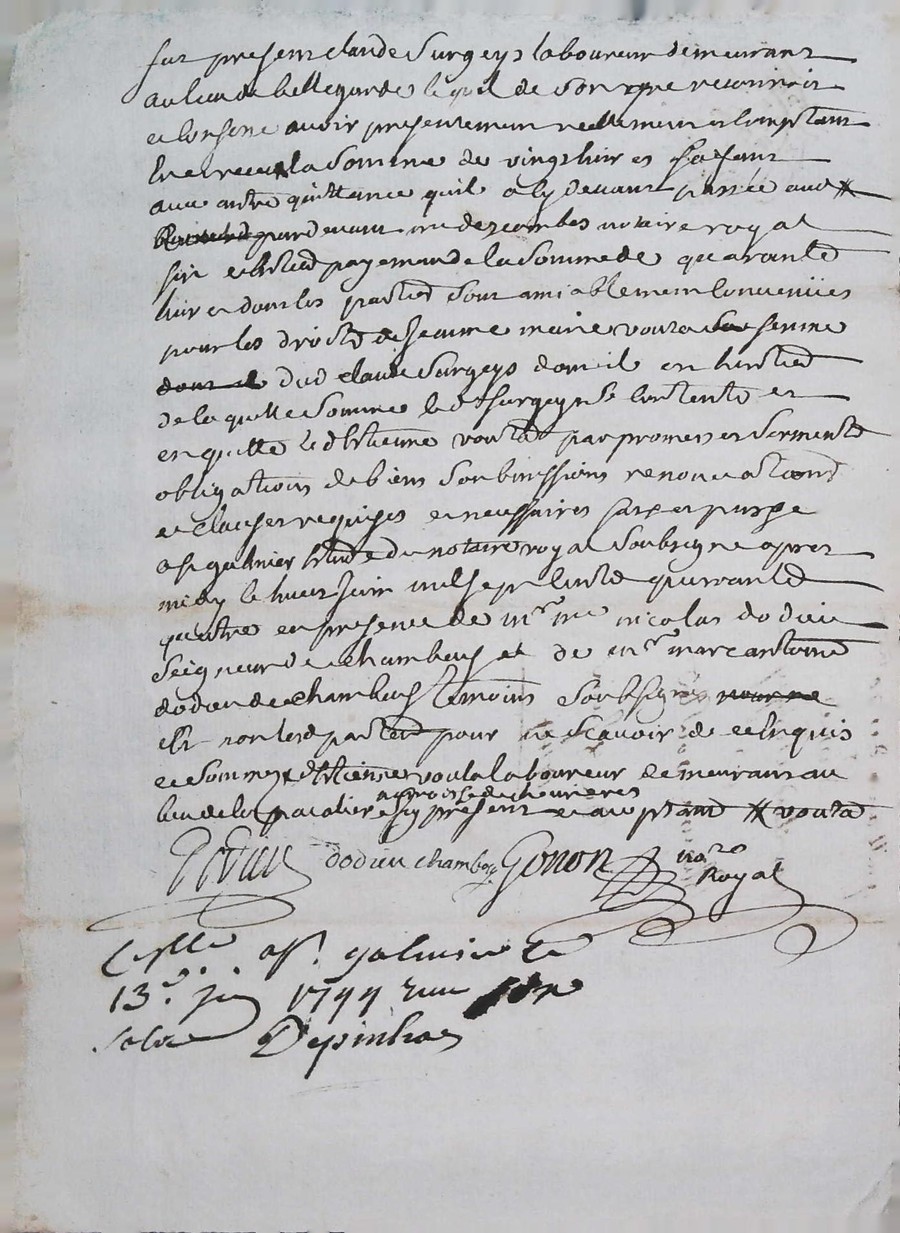 fut present claude Surgeys laboureur demeurant
au lieu de bellegarde lequel de son gre reconnoit
et confesse avoir presentement reellement et comptant
heu et receu la somme de vingt livres faisant
avec autre quittance quil a cy devant passée aud #
pardevant me descombes notaire royal
fin et entier payement de la somme de quarante
livres dont les parties sont amiablement convenües
pour les droits de jeanne marie voutas femme
dont il dud claude Surgeys dont il en
de la quelle somme led Surgeys se contente et
en quitte led Etienne voutas par promesses serments
obligations de biens soubmissions renonciations
et clauses requises et necessaires fait et passe
a st galmier Etude du notaire royal soubsigne apres
midy le huit juin mil sept cents quarante
quatre en presence de mr me nicolas dodieu
Seigneur de chambeuf et de mr marc antoine
dodieu de chambeuf temoins soubsignes
et non les parties pour ne scavoir de ce enquis
et sommes # Etienne voutas laboureur demeurant au
paroisse de chevrieres
lieu de icy present et acceptant # voutas
dodieu chambeuf Gonon nore
Royal
Celle a st galmier le
13e jui 1744
Depinhac